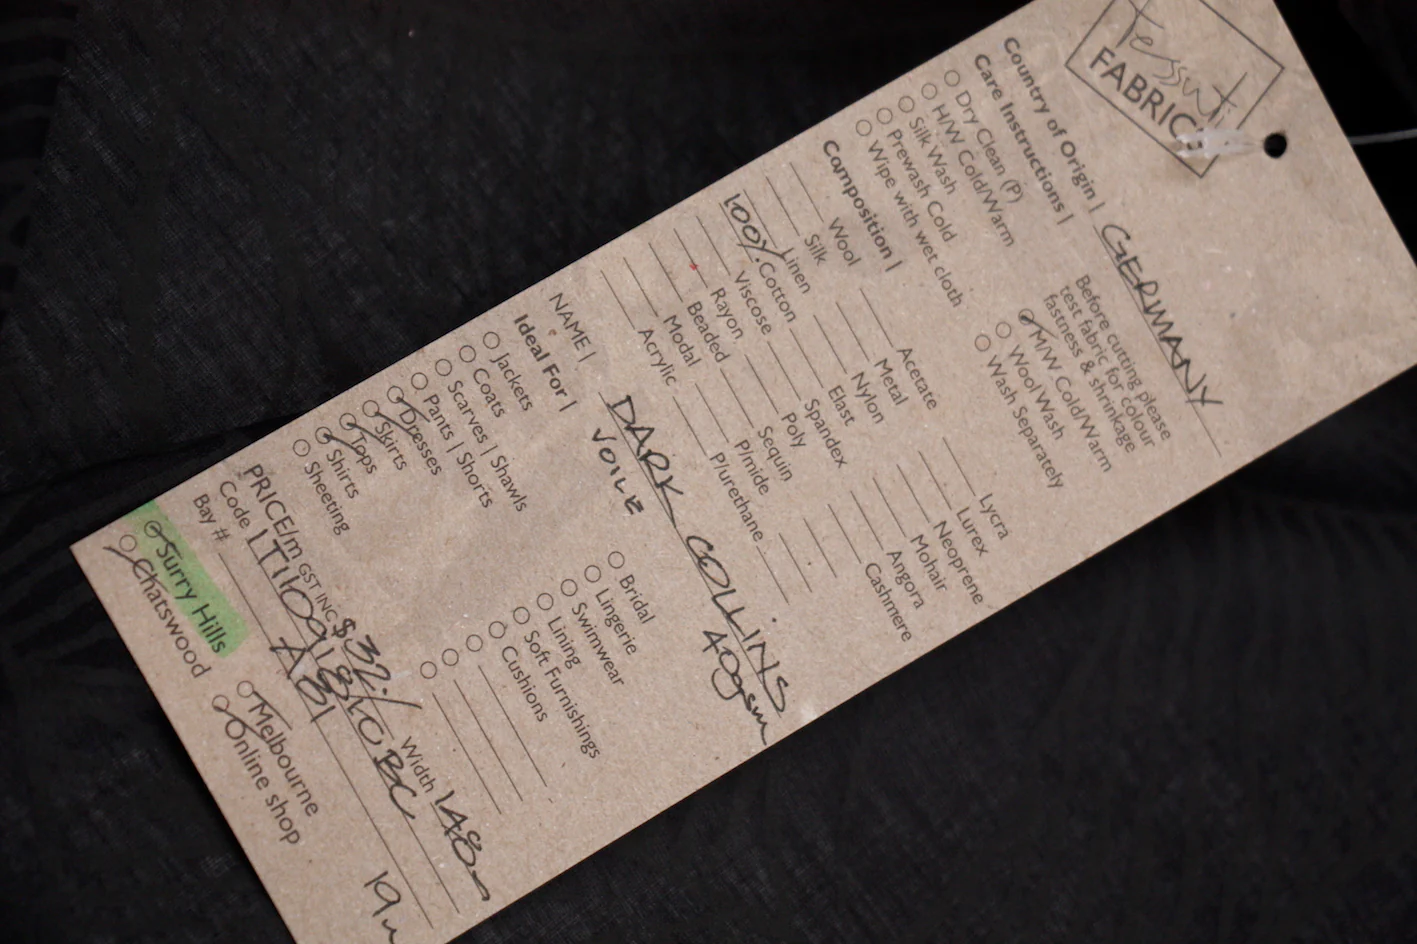 Tessuti
FABRICS
Country of Origin | GERMANY
Care Instructions |
Before cutting please
test fabric for colour
fastness & shrinkage
Dry Clean (P)
H/W Cold/Warm
Silk Wash
Prewash Cold
Wipe with wet cloth
M/W Cold/Warm
Wool Wash
Wash Separately
Composition |
Wool
Silk
Linen
100% Cotton
Viscose
Rayon
Beaded
Modal
Acrylic
Acetate
Metal
Nylon
Elast
Spandex
Poly
Sequin
P/mide
P/urethane
Lycra
Lurex
Neoprene
Mohair
Angora
Cashmere
NAME | DARK COLLINS
VOILE 40gsm
Ideal For |
Jackets
Coats
Scarves | Shawls
Pants | Shorts
Dresses
Skirts
Tops
Shirts
Sheeting
Bridal
Lingerie
Swimwear
Lining
Soft Furnishings
Cushions
PRICE/m GST INC $32.- Width 148
Code
Bay # A81 19
Surry Hills
Chatswood
Melbourne
Online shop